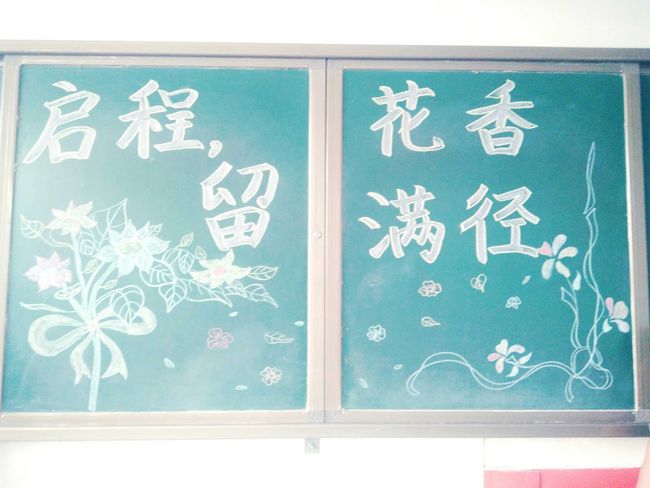 启程,
留
花香
满径